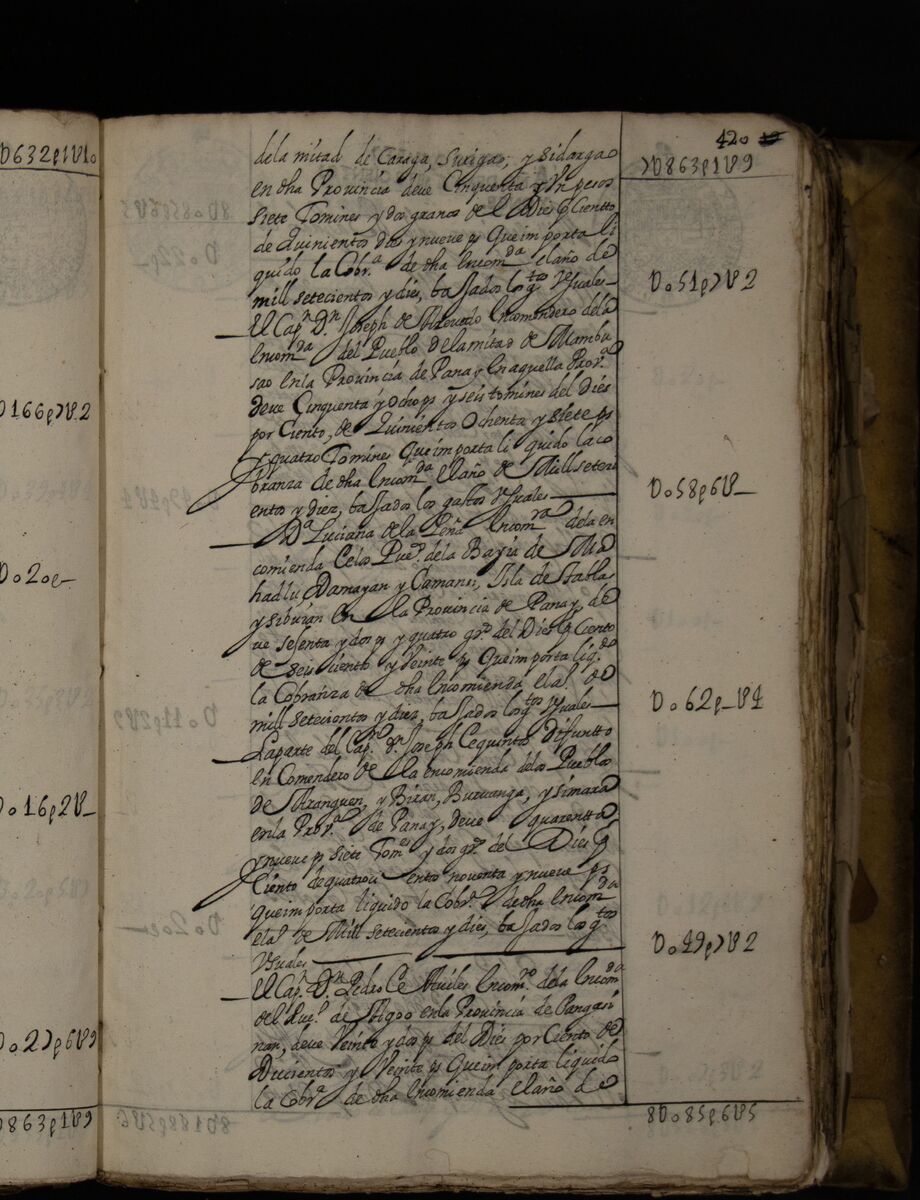 420
7U863p1U9
de la mitad de Caraga, Surigao, y Sidargao
en dha Provincia deve Cinquenta y Un pesos
Siete Tomines y dos granos de el Dies p Ciento
de Quinientos Dies y nueve ps Que importa li
quido la Cobr.a de dha Encom.da el año de
mill setecientos y dies, bajados los g.tos Vsuales
El Cap.n D.n Joseph de Azevedo Encomendero de la
Encom.da del Pueblo de la mitad de Mambu
sao en la Provincia de Panay En aquella Prov.a
deve Cinquenta y Ocho ps y seis tomines del Dies
por Ciento, de Quinientos Ochenta y siete ps
y quatro Tomines Que importa li quido la co
branza de dha Encom.da el año de Mill seteci
entos y diez, bajados los gastos Vsuales
D.a Luciana de la Peña Encom.ra de la en
comienda de los Pue.s de la Bayia de
Damayan y Camansi, Isla de Tablas
y Sibuian en la Provincia de Panay, de
ve sesenta y dos ps y quatro gr.s del Dies p Ciento
de seis ciento y Veinte ps Que importa liq.do
la Cobranza de dha Encomienda el a.o de
mill setecientos y diez, bajados los g.tos Vsuales
La parte del Cap.n D. Joseph Cequintos difuntto
en Comendero de la encomienda de los Pueblos
de Aranguen, y Biran, Buruanga, y Simara
en la Prov.a de Panay, deve quarentta
y nueve ps siete Tom.s y dos gr.s del Dies p
Ciento de quatroci entos noventa y nueve ps
Que importa liquido la Cobr.a de dha Encom.da
el a.o de Mill setecientos y dies, bajados los g.tos
Vsuales
El Cap.n D.n Pedro de Aviles Encom.ro de la Encom.da
del Pue.o de Agoo en la Provincia de Pangasi
nan, deve Veinte y dos ps del Dies por Ciento de
Ducientos y Veinte ps Que im porta liquido
la Cobr.a de dha Encomienda el año de
Uo51p7U2
Uo58p6U_
Uo62p_U4
Uo49p7U2
8Uo85p6U5
U632p1U10
U166p7U2
Uo20p_
Uo16p2U_
Uo27p6U9
U863p1U9